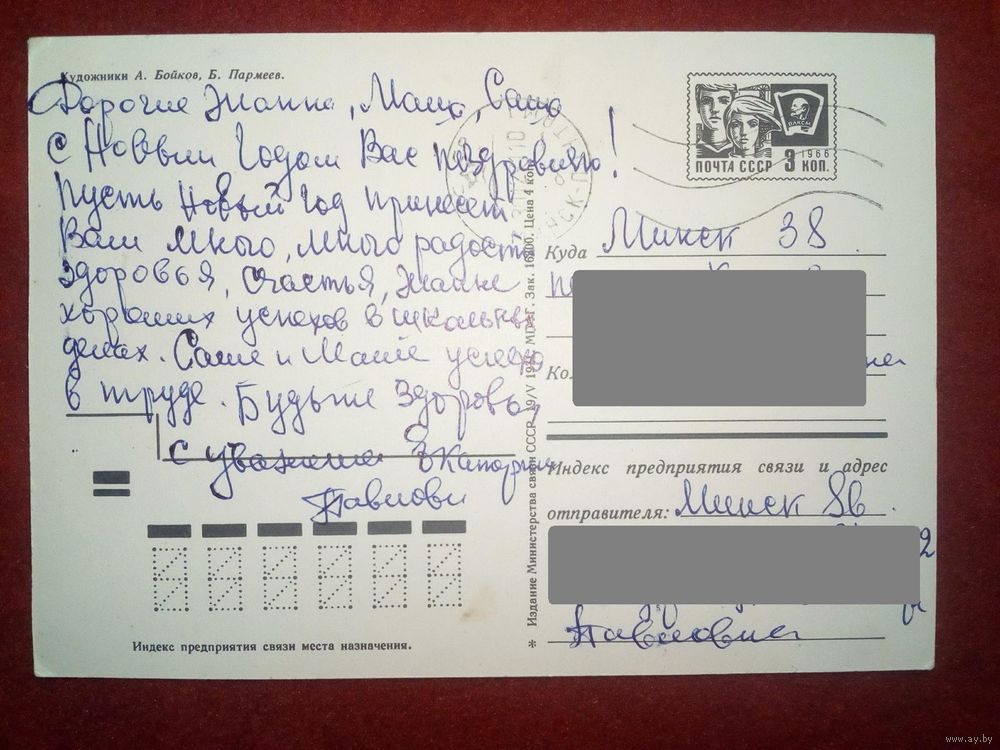 Художники А. Бойков, Б. Пармеев.
Дорогие Жанна, Маша, Саша
С Новым Годом Вас поздравляю!
Пусть Новый Год принесет
Вам много, много радости
здоровья, счастья, Жанне
хороших успехов в школьных
делах. Саше и Маше успехов
в труде. Будьте здоровы,
с уважением Екатерина
Павловн
ПОЧТА СССР 3 КОП.
1966
ВЛКСМ
Куда Минск 38
Индекс предприятия связи и адрес
отправителя: Минск
Павловна
Издание Министерства связи СССР. 19/V МПФГ. Зак. Цена 4 коп.
Индекс предприятия связи места назначения.
www.ay.by